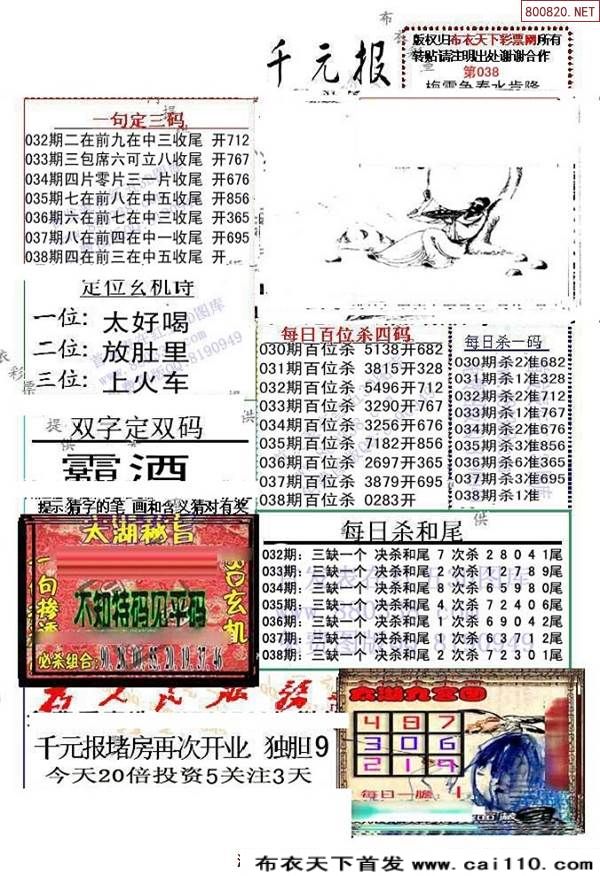 800820.NET
千元报
版权归布衣天下彩票网所有
转贴请注明出处谢谢合作
第038
一句定三码
032期二在前九在中三收尾 开712
033期三包席六可立八收尾 开767
034期四片零片三一片收尾 开676
035期七在前八在中五收尾 开856
036期六在前七在中三收尾 开365
037期八在前四在一中收尾 开695
038期四在前三在中五收尾 开
定位玄机诗
一位: 太好喝
二位: 放肚里
三位: 上火车
双字定双码
霸酒
提示猜字的笔 画和含义猜对有奖
每日百位杀四码
030期百位杀 5138开682
031期百位杀 3815开328
032期百位杀 5496开712
033期百位杀 3290开767
034期百位杀 3256开676
035期百位杀 7182开856
036期百位杀 2697开365
037期百位杀 3879开695
038期百位杀 0283开
每日杀一码
030期杀2准682
031期杀1准328
032期杀2准712
033期杀1准767
034期杀2准676
035期杀3准856
036期杀6准365
037期杀6准695
038期杀1准
每日杀和尾
032期: 三缺一个 决杀和尾 7 次杀 2 8 0 4 1尾
033期: 三缺一个 决杀和尾 2 次杀 2 1 7 8 9尾
034期: 三缺一个 决杀和尾 8 次杀 6 5 9 8 0尾
035期: 三缺一个 决杀和尾 4 次杀 7 2 4 0 6尾
036期: 三缺一个 决杀和尾 1 次杀 6 9 0 4 2尾
037期: 三缺一个 决杀和尾 1 次杀 9 0 4 2 1尾
038期: 三缺一个 决杀和尾 2 次杀 7 2 3 0 1尾
太湖秘旨
不知特码见平码
玄机
必杀组合:
千元报堵房再次开业 独胆9
今天20倍投资5关注3天
太湖九宫图
4 9 7
3 0 6
2 1 9
每日一胆: 1
布衣天下首发 www.cai110.com